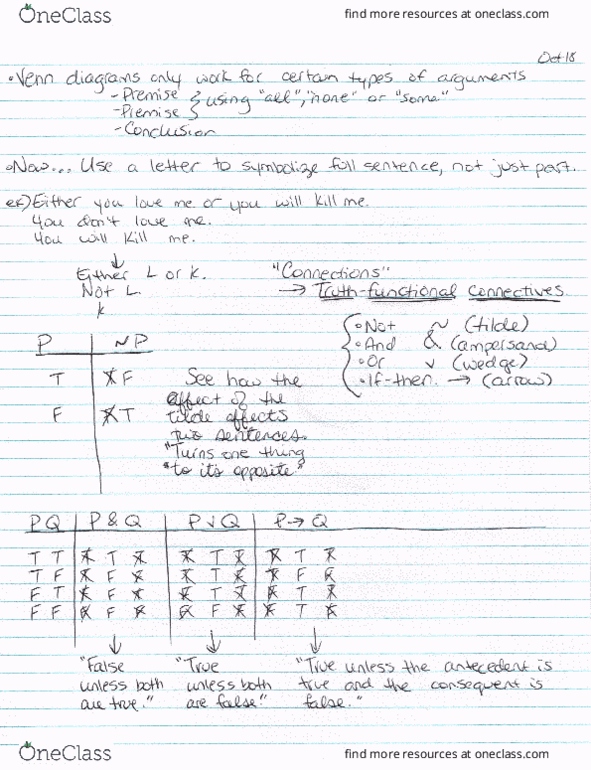 OneClass find more resources at oneclass.com
Oct 18
• Venn diagrams only work for certain types of arguments
- Premise
- Premise } using "all", "none" or "some."
- Conclusion
• Now... Use a letter to symbolize full sentence, not just part.
ex) Either you love me or you will kill me.
You don't love me.
You will kill me.
↓
Either L or k. "Connections"
Not L. → Truth-functional connectives
k
• Not ~ (tilde)
• And & (ampersand)
• Or v (wedge)
• If-then. → (arrow)
P ~P
T F
F T
See how the
effect of the
tilde affects
two sentences.
"Turns one thing
"to its opposite"
P Q P & Q P v Q P → Q
T T T T T
T F F T F
F T F T T
F F F F T
↓ ↓ ↓
"False "True "True unless the antecedent is
unless both unless both true and the consequent is
are true." are false." false."
OneClass find more resources at oneclass.com